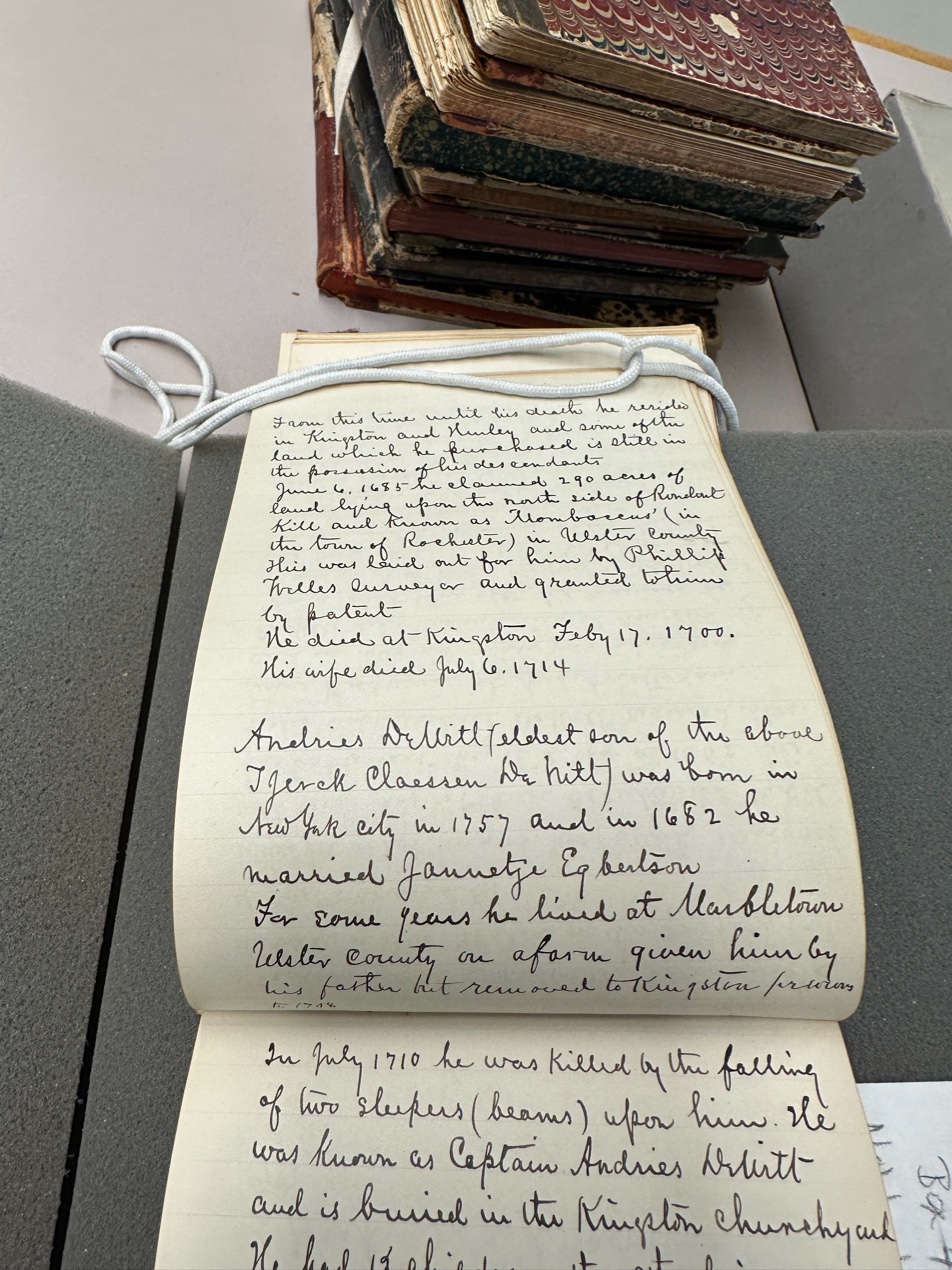 From this time until his death he resided
in Kingston and Hurley and some of the
land which he purchased is still in
the possession of his descendants
June 6. 1685 he claimed 290 acres of
land lying upon the north side of Rondout
Kill and known as "Mombaccus" (in
the town of Rochester) in Ulster County
This was laid out for him by Phillip
Welles surveyor and granted to him
by patent
He died at Kingston Feby 17. 1700.
His wife died July 6. 1714
Andries DeWitt (eldest son of the above
Tjerck Claessen De Witt) was born in
New York city in 1757 and in 1682 he
married Jannetje Egbertson
For some years he lived at Marbletown
Ulster County on a farm given him by
his father but removed to Kingston previous
to
In July 1710 he was killed by the falling
of two sleepers (beams) upon him. He
was known as Captain Andries DeWitt
and is buried in the Kingston churchyard
He had
Box